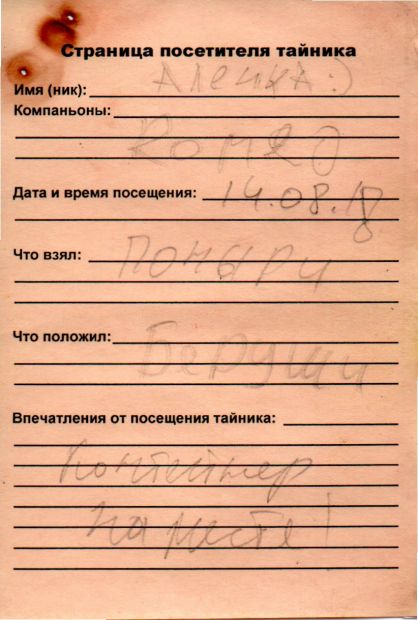 Страница посетителя тайника
Имя (ник): Аленка :)
Компаньоны:
Дата и время посещения: 14.08.18
Что взял: Поныри
Что положил:
Беруши
Впечатления от посещения тайника:
Контейнер
на месте!